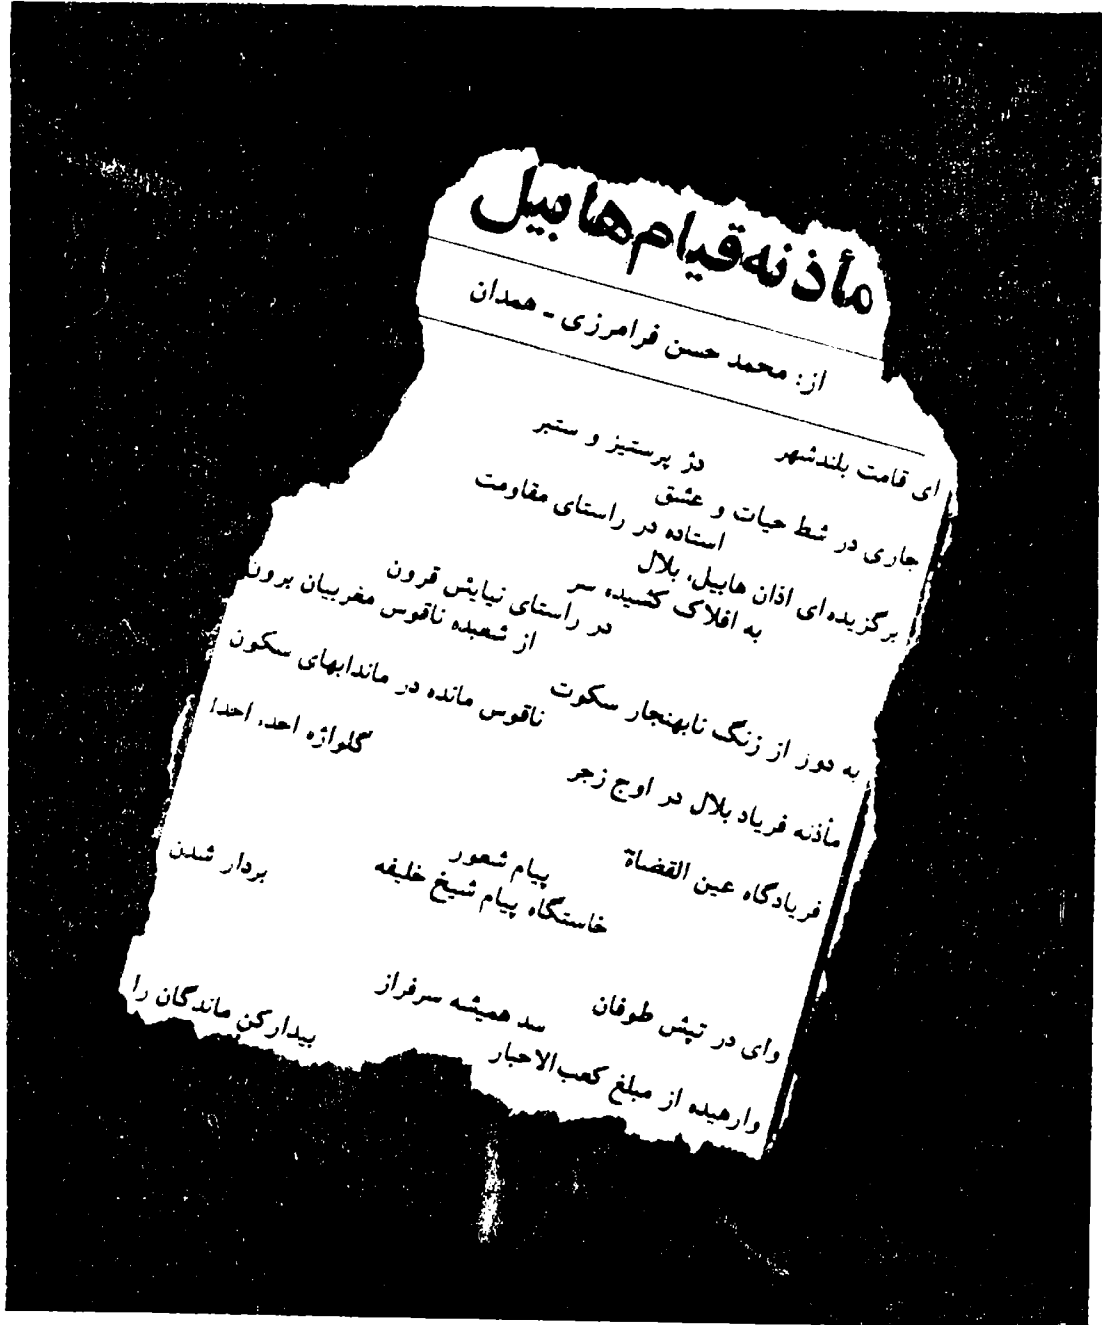 مأذنه قیام هابیل
از: محمد حسن فرامرزی ـ همدان
ای قامت بلندشهر
دژ پرستیز و ستبر
جاری در شط حیات و عشق
استاده در راستای مقاومت
برگزیده‌ای اذان هابیل، بلال
به افلاک کشیده سر
در راستای نیایش قرون
از شعبده ناقوس مغربیان برون
به دور از زنگ نابهنجار سکوت
ناقوس مانده در ماندابهای سکون
مأذنه فریاد بلال در اوج زجر
گلواژه احد، احد!
فریادگاه عین القضاة
پیام شعور
خاستگاه پیام شیخ خلیفه
بردار شدن
وای در تپش طوفان
سد همیشه سرفراز
وارهیده از مبلغ کعب‌الاحبار
بیدارکن ماندگان را